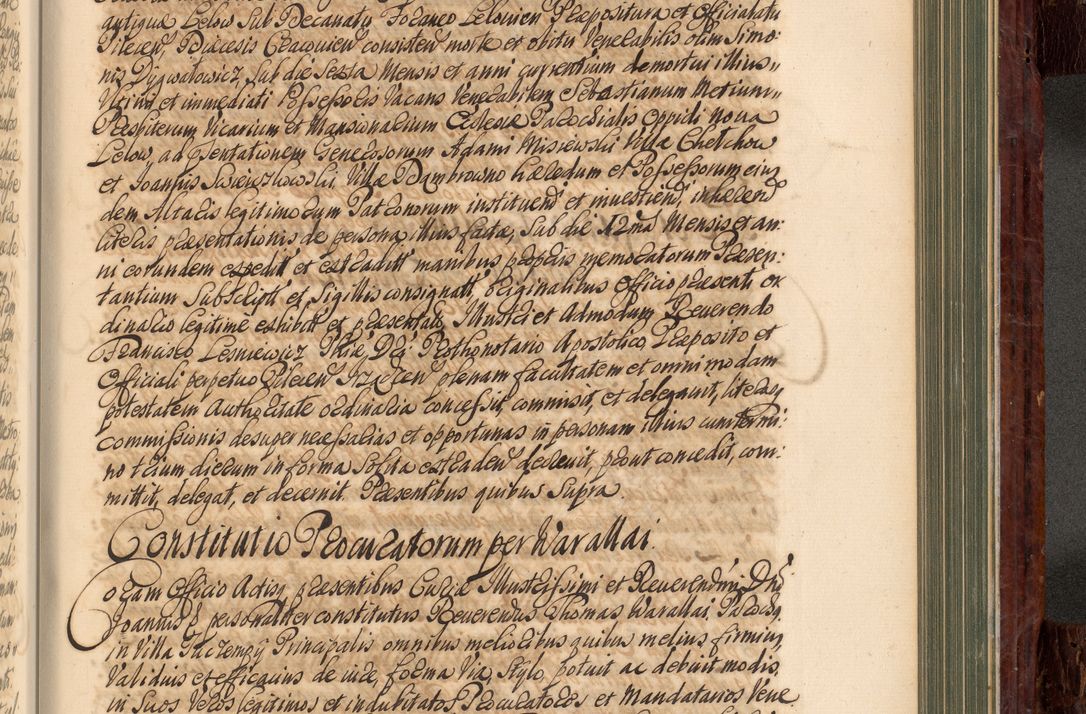 antiquæ Lelow Sub Decanatu Foraneo Lelovien Præpositura et Officialatu
Pilecen, Diæcesis Cracovien consisten morte et obitu Venerabilis olim Simo:
nis Dygwałowicz, Sub die Sexta Mensis et anni currentium demortui illius,,
Ultimi et immediati Possessoris Vacans Venerabilem Sebastianum Metium,,
Presbiterum Vicarium et Mansionarium Ecclesiæ Parochialis Oppidi Nova
Lelow, ad præsentationem Generosorum Adami Misiewski Villæ Chełchow
et Joannis Swieszkowski Villæ Dambrowno hæredum et Possessorum eius
dem Altaris legitimorum Patronorum instituend et investiend, inhærend
literis præsentationis de persona illius factæ, Sub die 12ma Mensis et an:
ni eorundem expedit et extradit manibus propriis memoratorum Præsen:
tantium Subscript et Sigillis consignat, originalibus Officio præsenti or
dinario legitime exhibit et præsentat, Illustri et Admodum Reverendo
Francisco Lesniewicz Phiæ Dri Prothonotario Apostolico, Præposito et
Officiali perpetuo Pilecen plenam facultatem et omnimodam
potestatem Authoritate ordinaria concessit, commisit, et delegavit, literasq
commissionis desuper necessarias et opportunas in personam illius cum termi:
no trium dierum in forma Solita extraden decrevit, prout concedit, com:
mittit, delegat, et decernit. Præsentibus quibus Supra.
Constitutio Procuratorum per Warallai.
Coram Officio Actisq præsentibus Curiæ Illustrissimi et Reverendmi Dni
Joannis personaliter constitutus Reverendus Thomas Warallai Parochq
in Villa Principalis omnibus melioribus quibus melius, firmiusq
Validius et efficacius de iure, forma Via, Stylo, potuit ac debuit modis,
in Suos Veros legitimos et indubitatos Procuratores et Mandatarios Vene